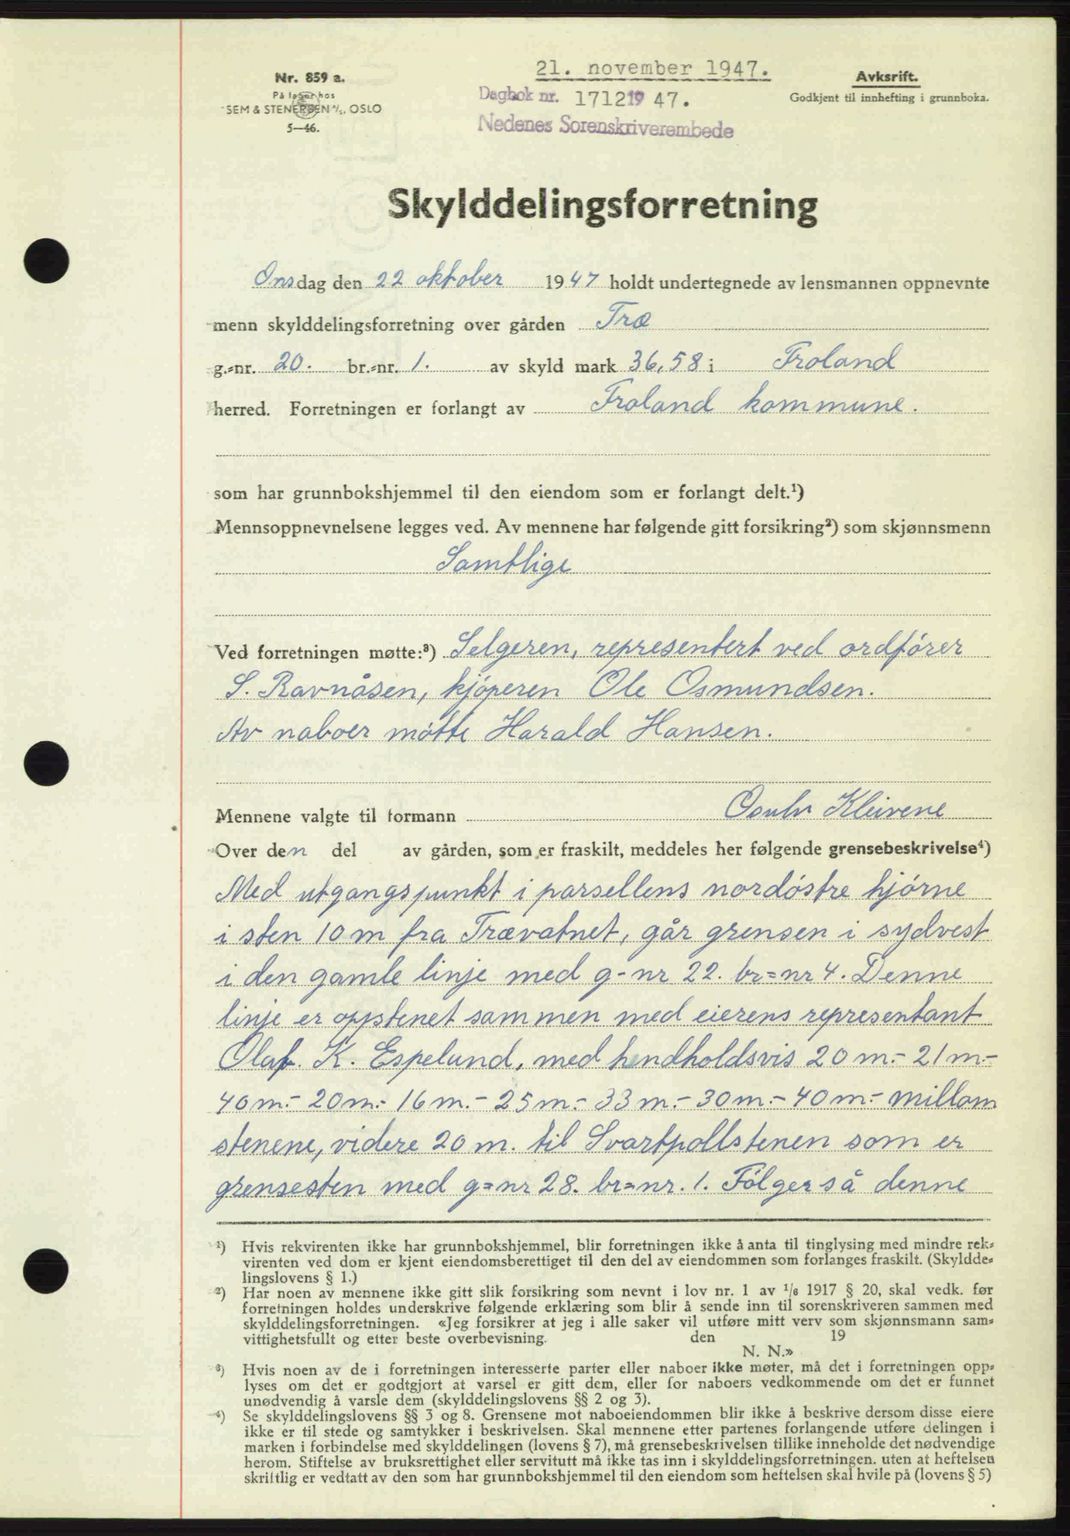 Nr. 859 a.
På lager hos
SEM & STENERSEN A/S, OSLO
5—46.
21. november 1947.
Dagbok nr. 1712 19 47.
Nedenes Sorenskriverembede
Avksrift.
Godkjent til innhefting i grunnboka.
Skylddelingsforretning
Onsdag den 22 oktober 1947 holdt undertegnede av lensmannen oppnevnte
menn skylddelingsforretning over gården Træ
g.-nr. 20. br.-nr. 1. av skyld mark 36,58 i Froland
herred. Forretningen er forlangt av Froland kommune.
som har grunnbokshjemmel til den eiendom som er forlangt delt.¹)
Mennsoppnevnelsene legges ved. Av mennene har følgende gitt forsikring²) som skjønnsmenn
Samtlige
Ved forretningen møtte:³) Selgeren, representert ved ordfører
S. Ravnåsen, kjøperen Ole Osmundsen.
Av naboer møtte Harald Hansen.
Mennene valgte til formann Osulv Kleivene
Over den del av gården, som er fraskilt, meddeles her følgende grensebeskrivelse⁴)
Med utgangspunkt i parsellens nordöstre hjörne
i sten 10 m fra Trævatnet, går grensen i sydvest
i den gamle linje med g-nr 22. br=nr 4. Denne
linje er oppstenet sammen med eierens representant
Olaf. K. Espelund, med hendholdsvis 20 m.- 21 m.-
40 m.- 20 m.- 16 m.- 25 m.- 33 m.- 30 m.- 40 m.- millom
stenene, videre 20 m. til Svartpollstenen som er
grensesten med g=nr 28. br=nr. 1. Fölger så denne
¹) Hvis rekvirenten ikke har grunnbokshjemmel, blir forretningen ikke å anta til tinglysing med mindre rek-
virenten ved dom er kjent eiendomsberettiget til den del av eiendommen som forlanges fraskilt. (Skyldde-
lingslovens § 1.)
²) Har noen av mennene ikke gitt slik forsikring som nevnt i lov nr. 1 av 1/6 1917 § 20, skal vedk. før
forretningen holdes underskrive følgende erklæring som blir å sende inn til sorenskriveren sammen med
skylddelingsforretningen. «Jeg forsikrer at jeg i alle saker vil utføre mitt verv som skjønnsmann sam-
vittighetsfullt og etter beste overbevisning. den 19
N. N.»
³) Hvis noen av de i forretningen interesserte parter eller naboer ikke møter, må det i forretningen opp-
lyses om det er godtgjort at varsel er gitt dem, eller for naboers vedkommende om det er funnet
unødvendig å varsle dem (skylddelingslovens §§ 2 og 3).
⁴) Se skylddelingslovens §§ 3 og 8. Grensene mot naboeiendommen blir ikke å beskrive dersom disse eiere
ikke er til stede og samtykker i beskrivelsen. Skal mennene etter partenes forlangende utføre delingen i
marken i forbindelse med skylddelingen (lovens § 7), må grensebeskrivelsen tillike inneholde det nødvendige
herom. Stiftelse av bruksrettighet eller servitutt må ikke tas inn i skylddelingsforretningen, uten at heftelsen
skriftlig er vedtatt av den som har grunnbokshjemmel til den eiendom som heftelsen skal hvile på (lovens § 5)